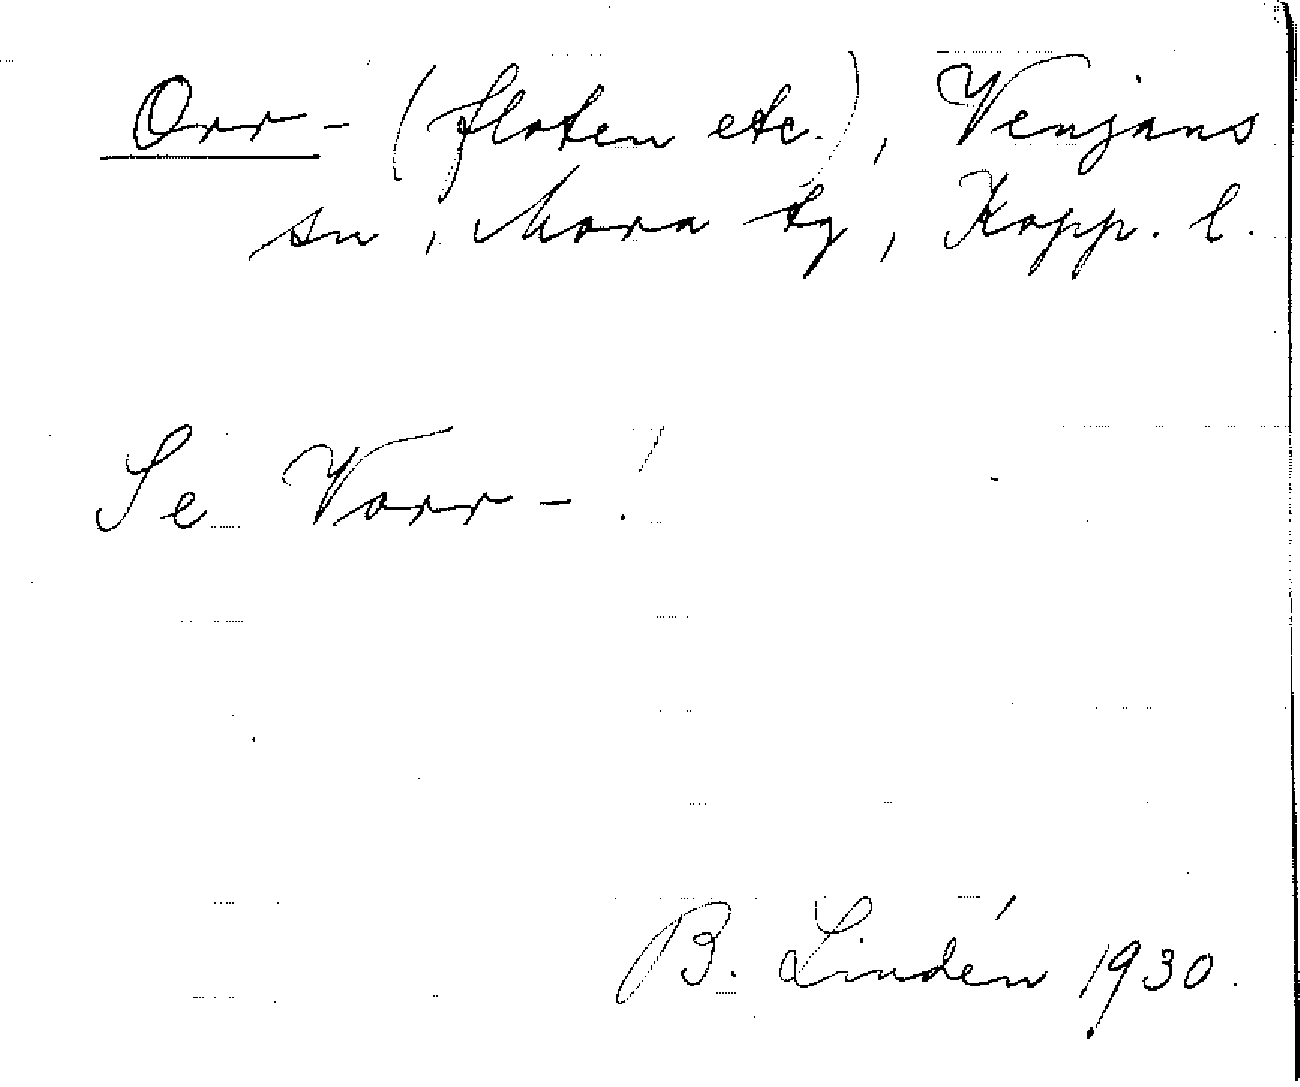 Orr- (floten etc.), Venjans
sn, Mora tg, Kopp. l.
Se Vorr-!
B. Lindén 1930.